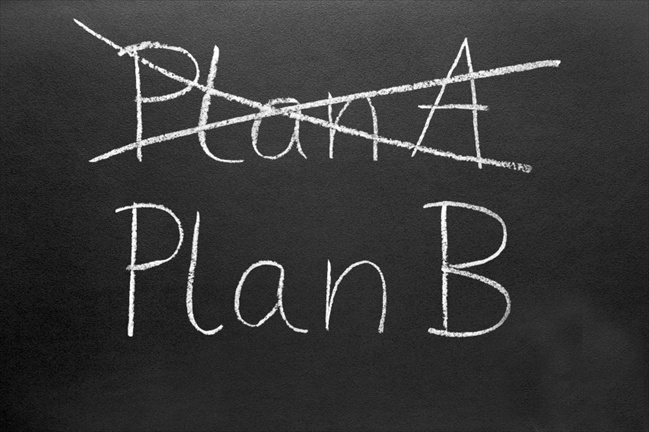 Plan A
Plan B